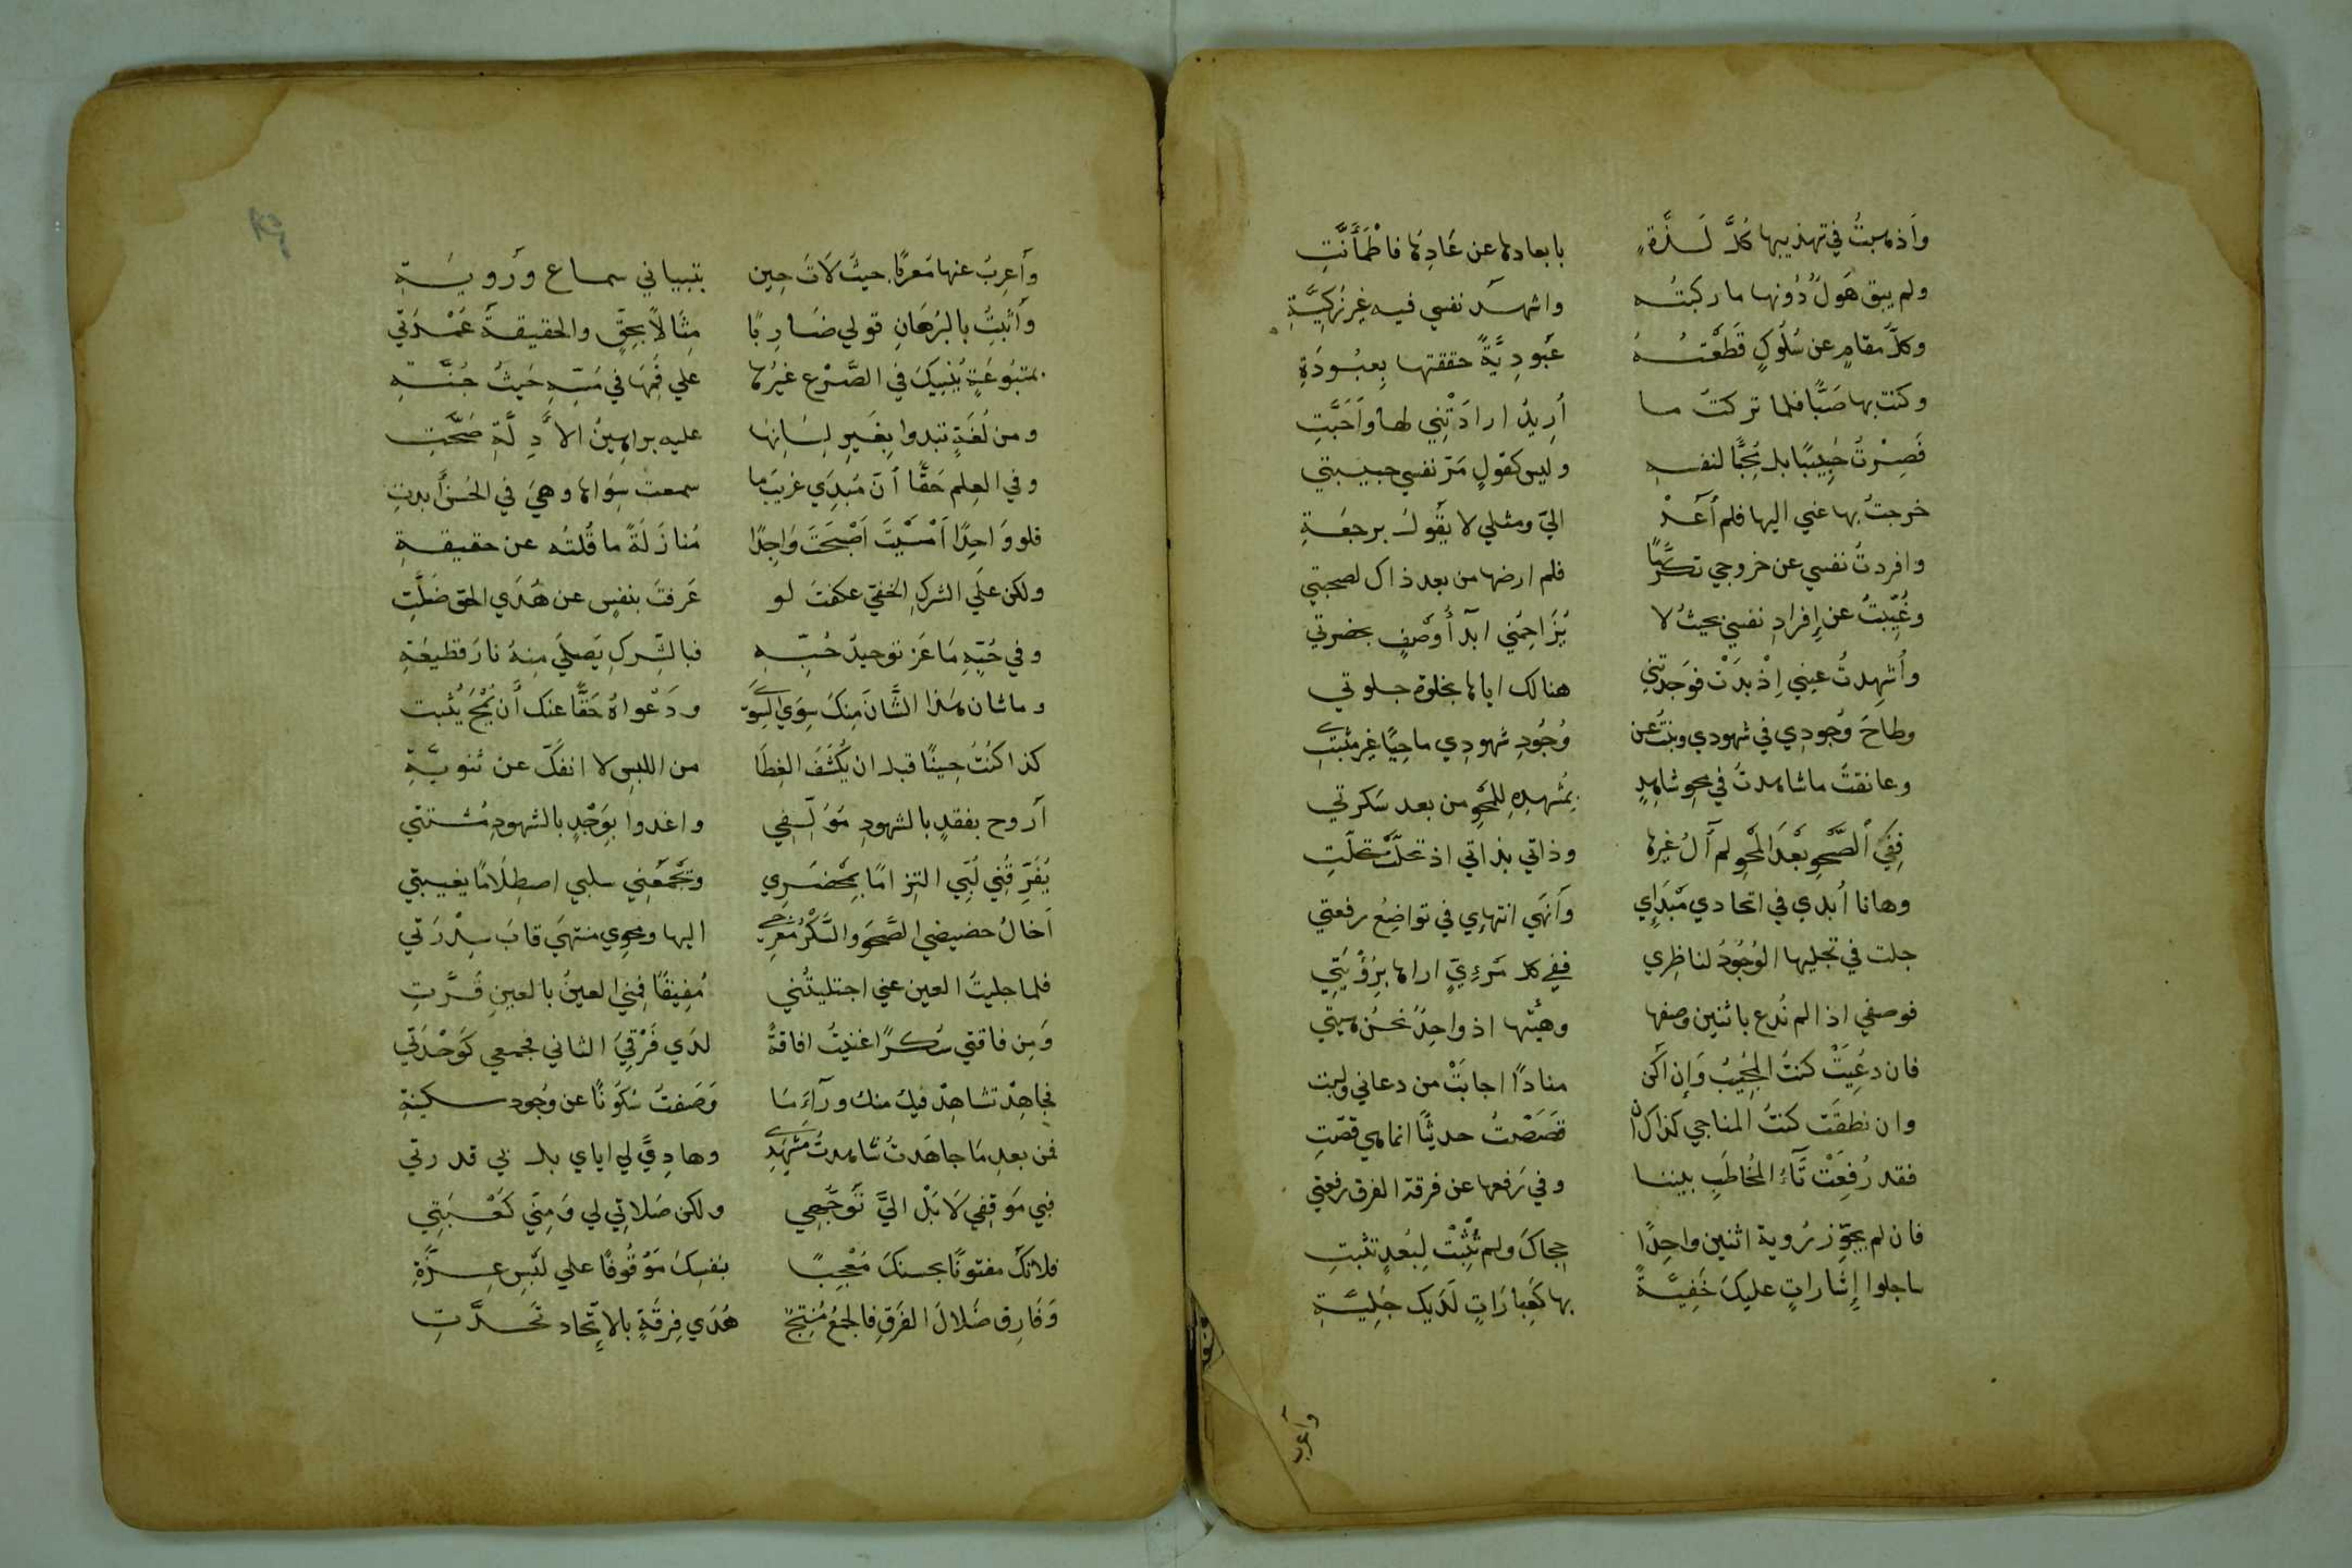 وَاَذهبتُ في تهذيبها كُلَّ لَذَّةٍ بابعادها عن عَادِهَا فاطْمَأَنَّتِ
ولم يبق هَولٌ دُونها ما ركبتُه واشهَد نفسي فيه غير زَكِيَّةِ
وكلَّ مقامٍ عن سُلُوكٍ قَطَعْتُهُ عَبودِيَّةً حققتها بِعبُودَةِ
وكنت بها صَبًّا فلما تركتُ ما أُريدُ ارادَتْنِي لها وَاَحَبَّتِ
فَصِرْتُ حَبِيبًا بل مُحِبًّا لنفسه وليس كقولٍ مَرّ نفسي حبيبتي
خرجتُ بها عني اليها فلم أَعُدْ اليّ ومثلي لا يقُولُ برجعَةِ
وافردتُ نفسي عن خروجي تكرُّمًا فلم ارضها من بعد ذاك لصحبتي
وغُيِّبتُ عن إِفرادِ نفسي بحيثُ لا يُزَاحِمُني ابدآءُ وَصْفٍ بحضرتي
وأُشهِدتُ غيبي إِذْ بَدَتْ فوَجَدتُني هنالك اياها بخلوة جلوتي
وطاحَ وُجودِي في شهودي وبنتُ عن وُجُودِ شهودِي ماحِيًا غير مثبتِ
وعانقتُ ما شاهدتُ في محوِ شاهِدٍ بمُشهدِهِ لِلصَّحْوِ من بعد سَكرتي
فَفِي الصَّحْوِ بَعْدَ المَحْوِ لم اَكُ غيرها وذاتي بذاتي اذ تحلَّتْ تجلَّتِ
وهانا اُبدي في اتحادي مَبْدَاي وَاُنهي انتهاءي في تواضِعُ رفعتي
جلت في تجليها الوُجُودُ لناظِري ففي كل مَرءيٍّ اراها بِرُؤيَتي
فوصفي اذا لم نُدع باثنين وصفها وهيئتها اذ واحِدٌ نحنُ هيئتي
فان دعِيَتْ كنتُ المُجيبُ وَإن اكن منادًا اجابَتْ من دعاني ولبت
وان نطقَت كنتُ المناجي كذاك ان قَصَصْتُ حديثًا انما هي قصّتِ
فقد رُفِعَتْ تَآءُ المُخاطَبِ بيننا وفي رَفعها عن فرقة الفرق رفعتي
فان لم يجوّز رُوية اثنين واحِدًا حِجاكَ ولم تُثْبِتْ لِبُعدٍ تثبت
ساجلوا إِشاراتٍ عليكَ خَفِيَّةً بها كَعِبارَاتٍ لَدَيك جَلِيَّةِ
وأعرب
وَاَعربُ عنها مَعربًا حيثُ لَاتَ حِين بتبياني سماعٍ وروُيَةِ
وَأُثبِتُ بالبرُهَانِ قولي ضَارِبًا مِثَالًا بحقٍّ والحقيقةُ عُمْدَتي
بمتبُوعَةٍ يُنْبِيكَ في الصَّرْعِ غيرُها علي فَمِهَا في مَسِّهِ حَيثُ جُنَّتِ
ومن لُغَةٍ تبدوا بِغَيرِ لِسَانِهَا عليه براهِينُ الأَدِلَّةِ صَحَّت
وفي العِلم حَقًّا أنّ مُبدِي غريبَ ما سمعت سِوَاها وهيَ في الحُسنِ أبدت
فلو وَاحِدًا اَمْسَيْتَ اَصْبَحتَ وَاجِدًا مُنازَلَةً ما قُلتُه عن حقيقةِ
ولكن عَلَي الشركِ الخفيّ عكفتَ لو عَرفتَ بنفسٍ عن هُدَي الحق ضلّتِ
وفي حُبِّهِ مَا عَز توحيدُ حُبِّهِ فبالشِّركِ يَصلَي مِنهُ نارَ قطيعَةِ
وما شان هذا الشَّانَ مِنكَ سِوَي السِّوَي ودَعْواهُ حَقًّا عنك أن تُمْحَ يُثبت
كذا كُنتُ حِينًا قبل ان يُكشَفَ الغِطَا من اللبس لا انفكّ عن ثنويَّةِ
اَروح بفقدٍ بالشهودِ مُؤلِّفي واغدوا بوَجْدٍ بالشهودِ مُشتتي
يُفَرِّقُني لُبِّي التِزامًا بِمَحْضَرِي وَيَجْمَعُني سلبي اصطِلَامًا بغيبتي
اَخالُ حضيضي الصَّحوَ والسُّكْرُ مَعرجي اليها ومحوي منتهي قابَ سِدْرَتي
فلما جليتُ العين عني اجتليتُني مُفِيقًا فمِني العينُ بالعينِ قُرَّتِ
وَمِن فاقتي سُكرًا غنيتُ افاقةً لدَي فَرْقِيَ الثاني فجمعي كوَحْدَتي
فجاهِدْ تشاهِدْ فيك منك ورآءَ مَا وَصَفتُ سُكُونًا عن وُجود سكينةِ
فمن بعد مَا جاهَدتُ شاهدتُ مَشهَدي وهادِيَّ لي اياي بل بي قدرتي
فبي مَوقِفِي لَا بَلْ اليَّ تَوَجُّهي ولكن صَلاتِي لي وَمِنّي كَعْبَتِي
فلاتكُ مفتونًا بحسنكَ مُعْجِبًا بنفسِكَ مَوْقُوفًا علي لَبْسِ غِرَّةِ
وَفَارِق ضَلالَ الفَرقِ فالجمْعُ مُنتِجٌ هُدَي فِرقَةٍ بالاتِّحادِ تَحدَّتِ